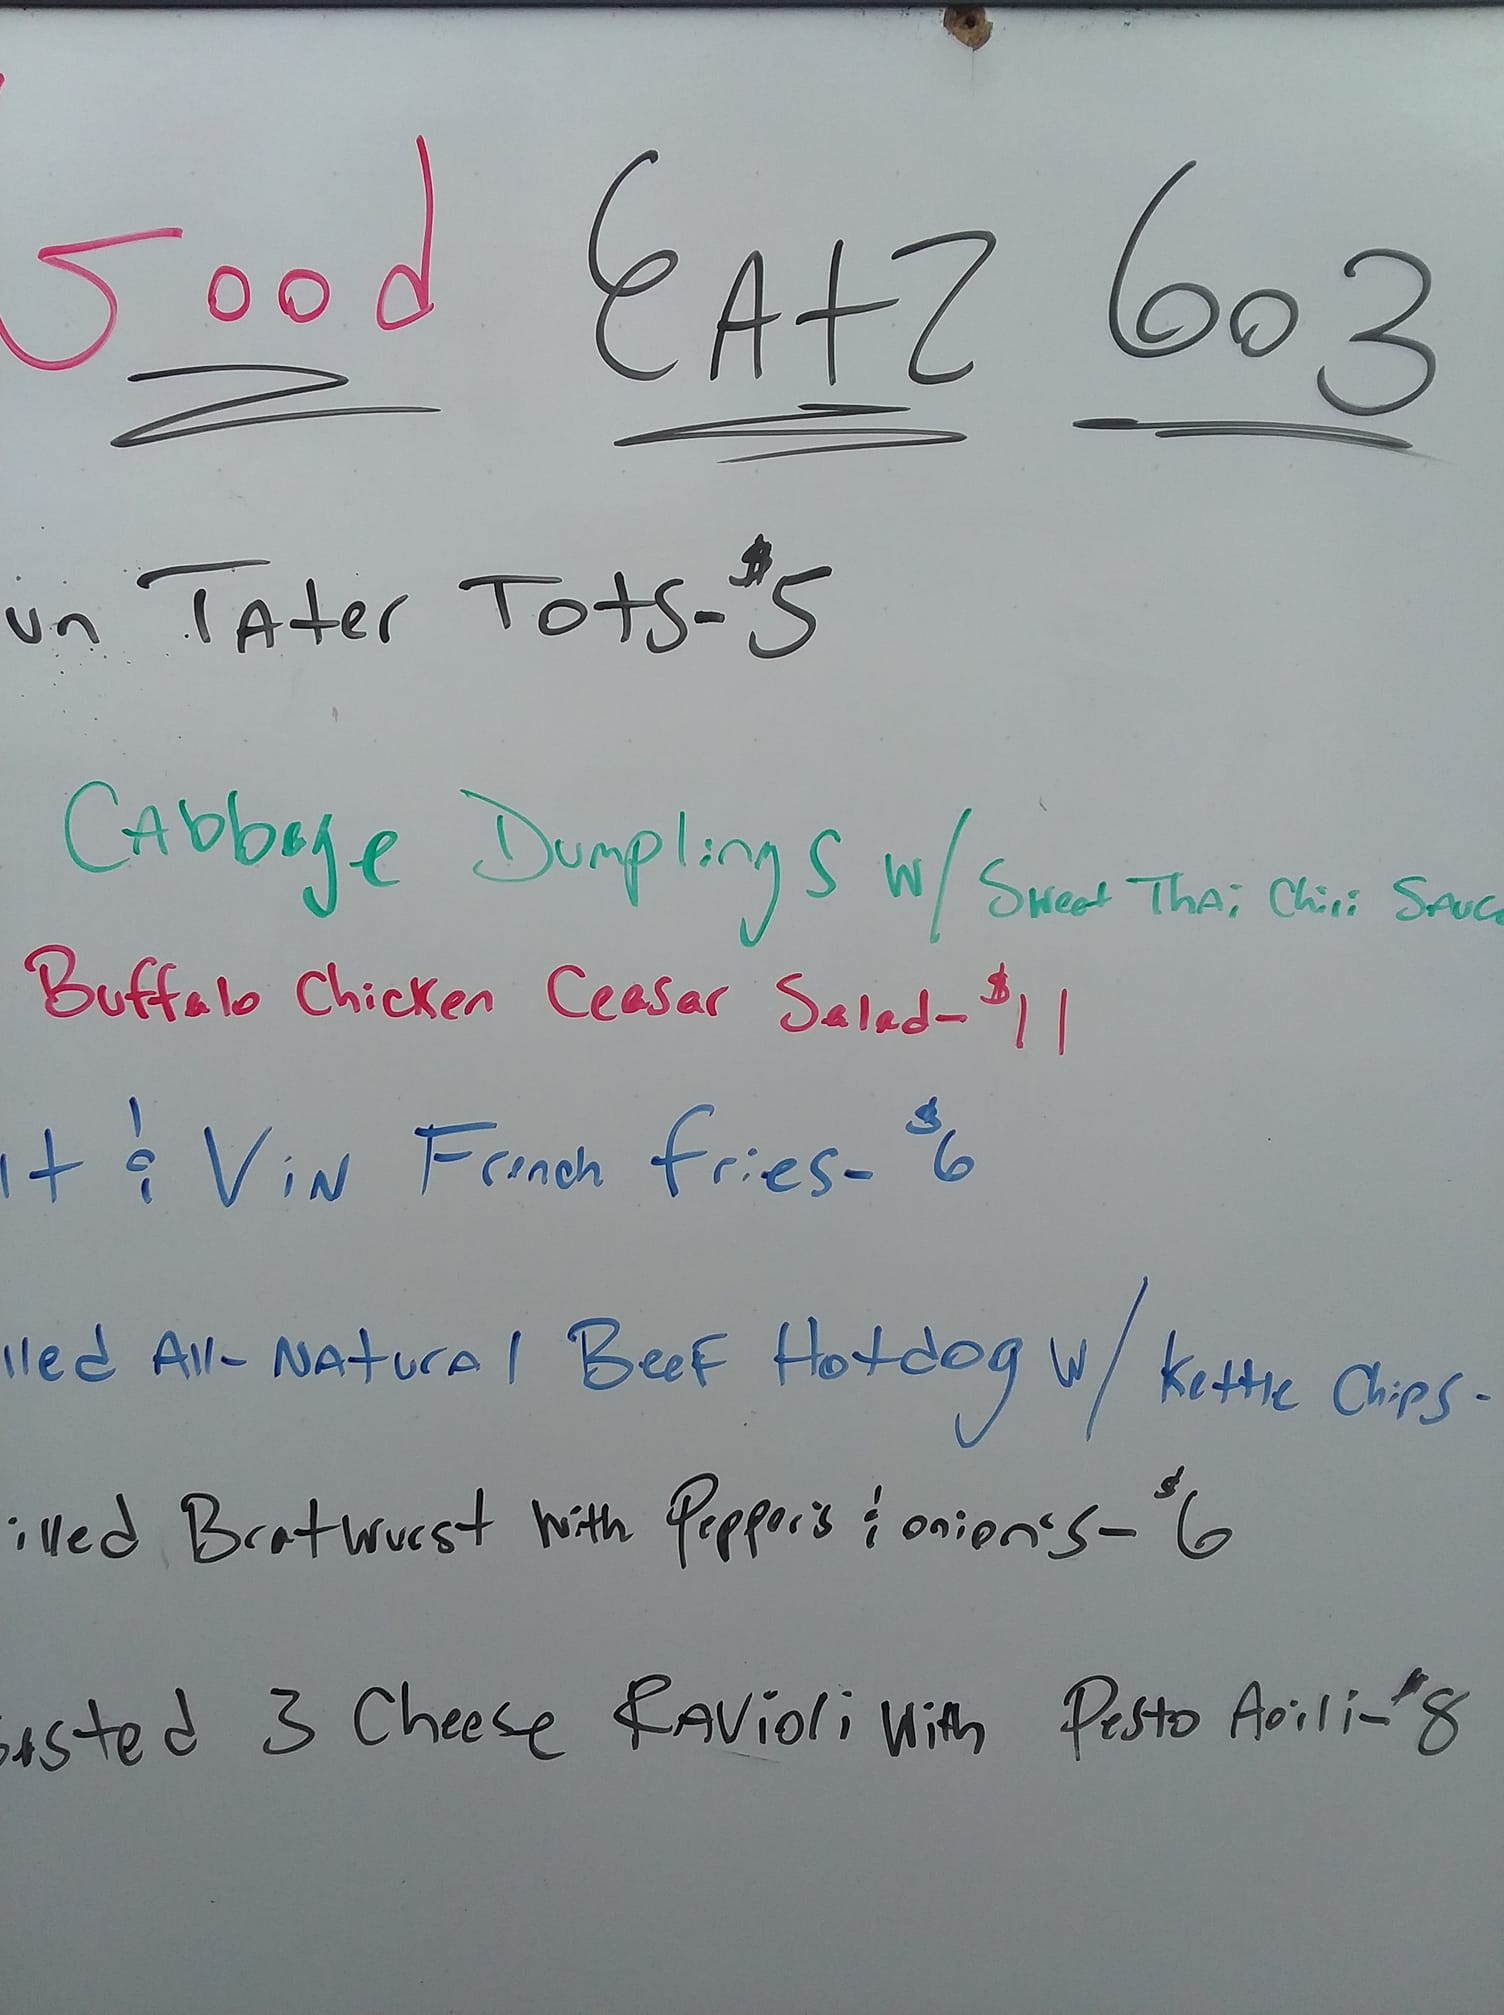 Good EAtz 603
un TAter Tots-$5
CAbbage Dumplings w/ Sweet ThAi Chili SAuce
Buffalo Chicken Ceasar Salad-$11
lt & ViN French fries-$6
lled All-NAturAl BeeF Hotdog w/ Kettle Chips-
illed Bratwurst with Pepper's & onion's-$6
asted 3 Cheese RAvioli with Pesto Aoili-$8